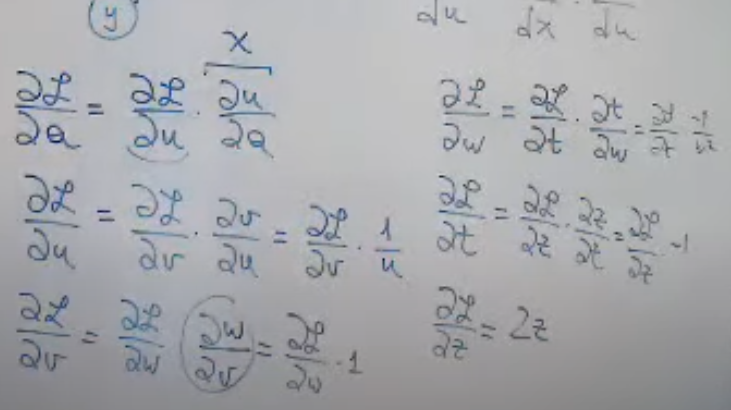 y
du dx du
x
∂ℒ/∂a = ∂ℒ/∂u · ∂u/∂a
∂ℒ/∂u = ∂ℒ/∂v · ∂v/∂u = ∂ℒ/∂v · 1/u
∂ℒ/∂v = ∂ℒ/∂w ∂w/∂v = ∂ℒ/∂w · 1
∂ℒ/∂w = ∂ℒ/∂t · ∂t/∂w =
∂ℒ/∂t = ∂ℒ/∂z · ∂z/∂t = ∂ℒ/∂z · -1
∂ℒ/∂z = 2z